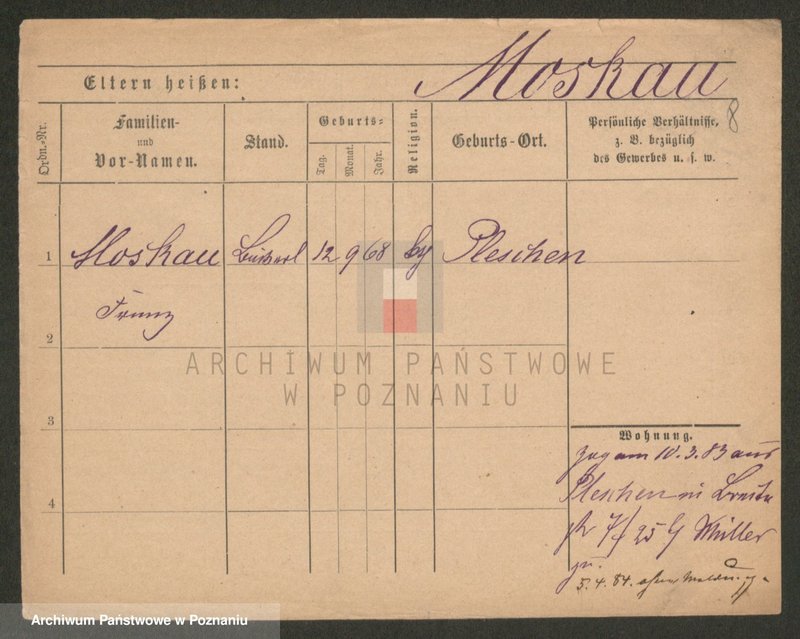 Moskau
Eltern heißen:
8
Ordn.-Nr.
Familien-
und
Vor-Namen.
Stand.
Geburts-
Tag.
Monat.
Jahr.
Religion.
Geburts-Ort.
Persönliche Verhältnisse,
z. B. bezüglich
des Gewerbes u. s. w.
1 Moskau 12 9 68 Pleschen
Franz
2
ARCHIWUM PAŃSTWOWE
W POZNANIU
3
Wohnung.
zog am 10. 3. 83 aus
Pleschen in Breite
4
str 7/ 25 Müller
zu.
5. 4. 84.
Archiwum Państwowe w Poznaniu